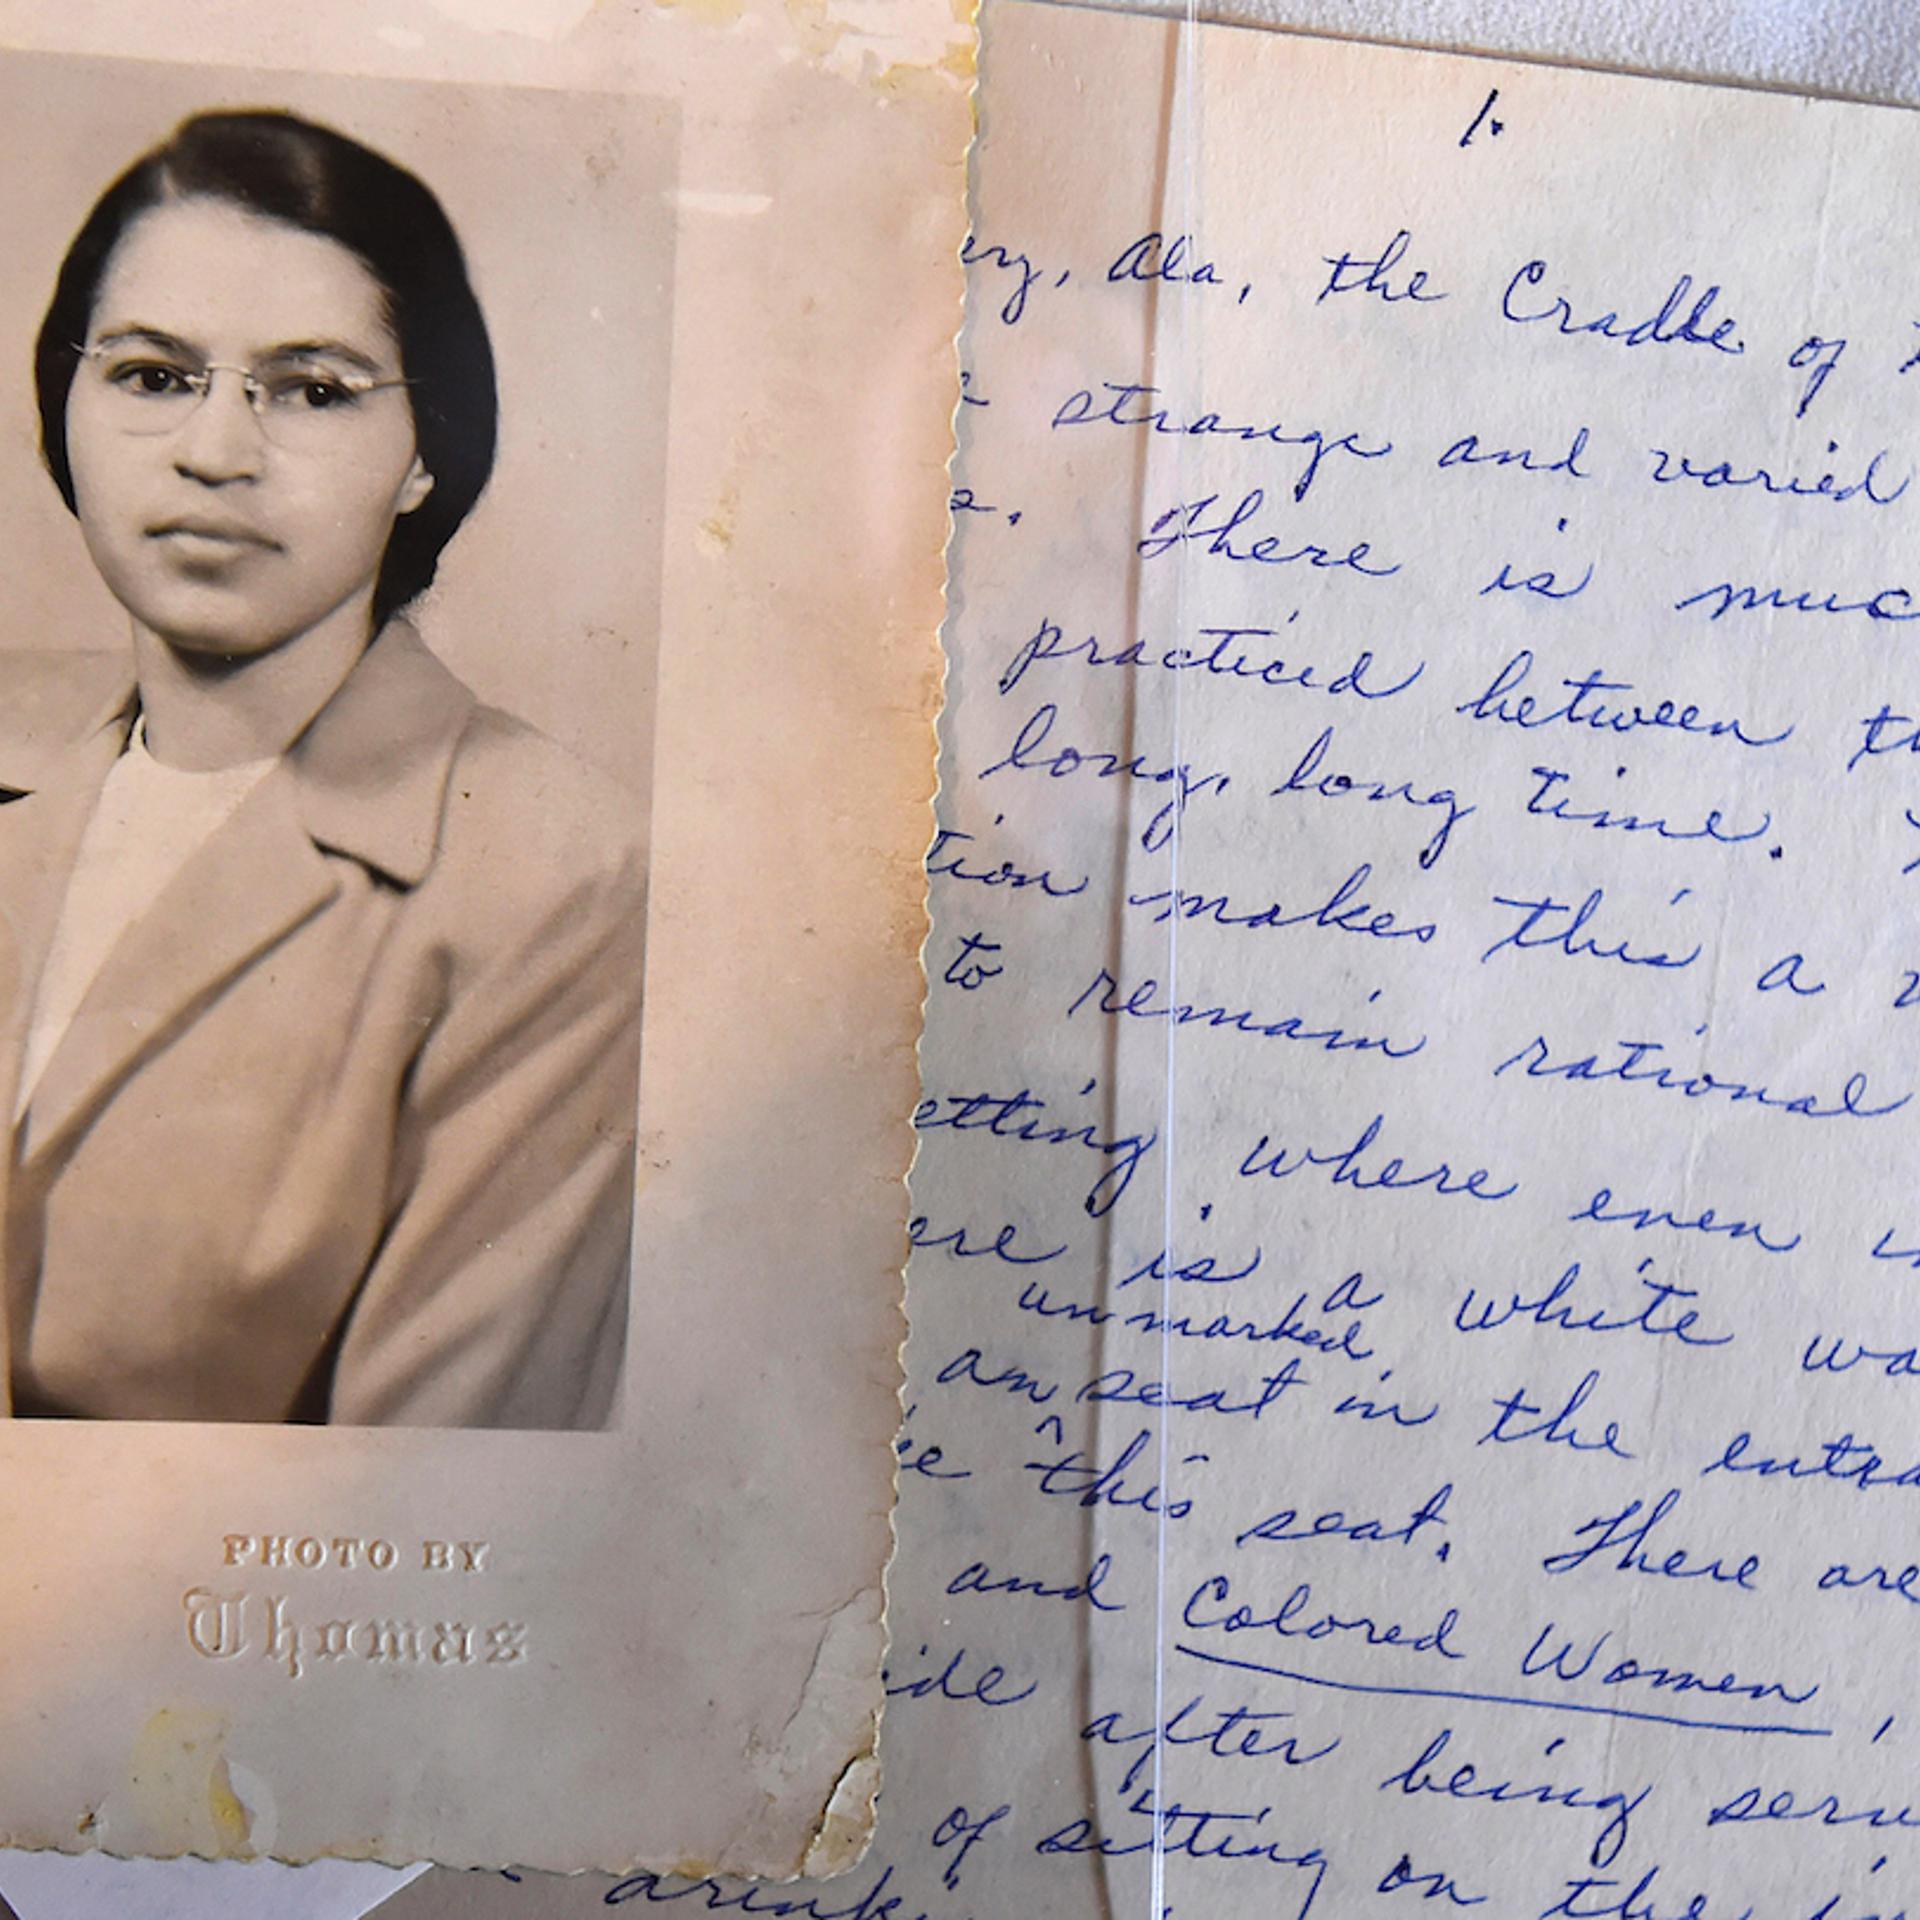 PHOTO BY
Thomas
1.
ery, Ala, the Cradle of
strange and varied
There is muc
practiced between
long, long time.
tion makes this a
to remain rational
etting where even
ere is a white wa
unmarked
am seat in the entra
this seat. There are
and Colored Women,
ide after being serv
of sitting on the
drink